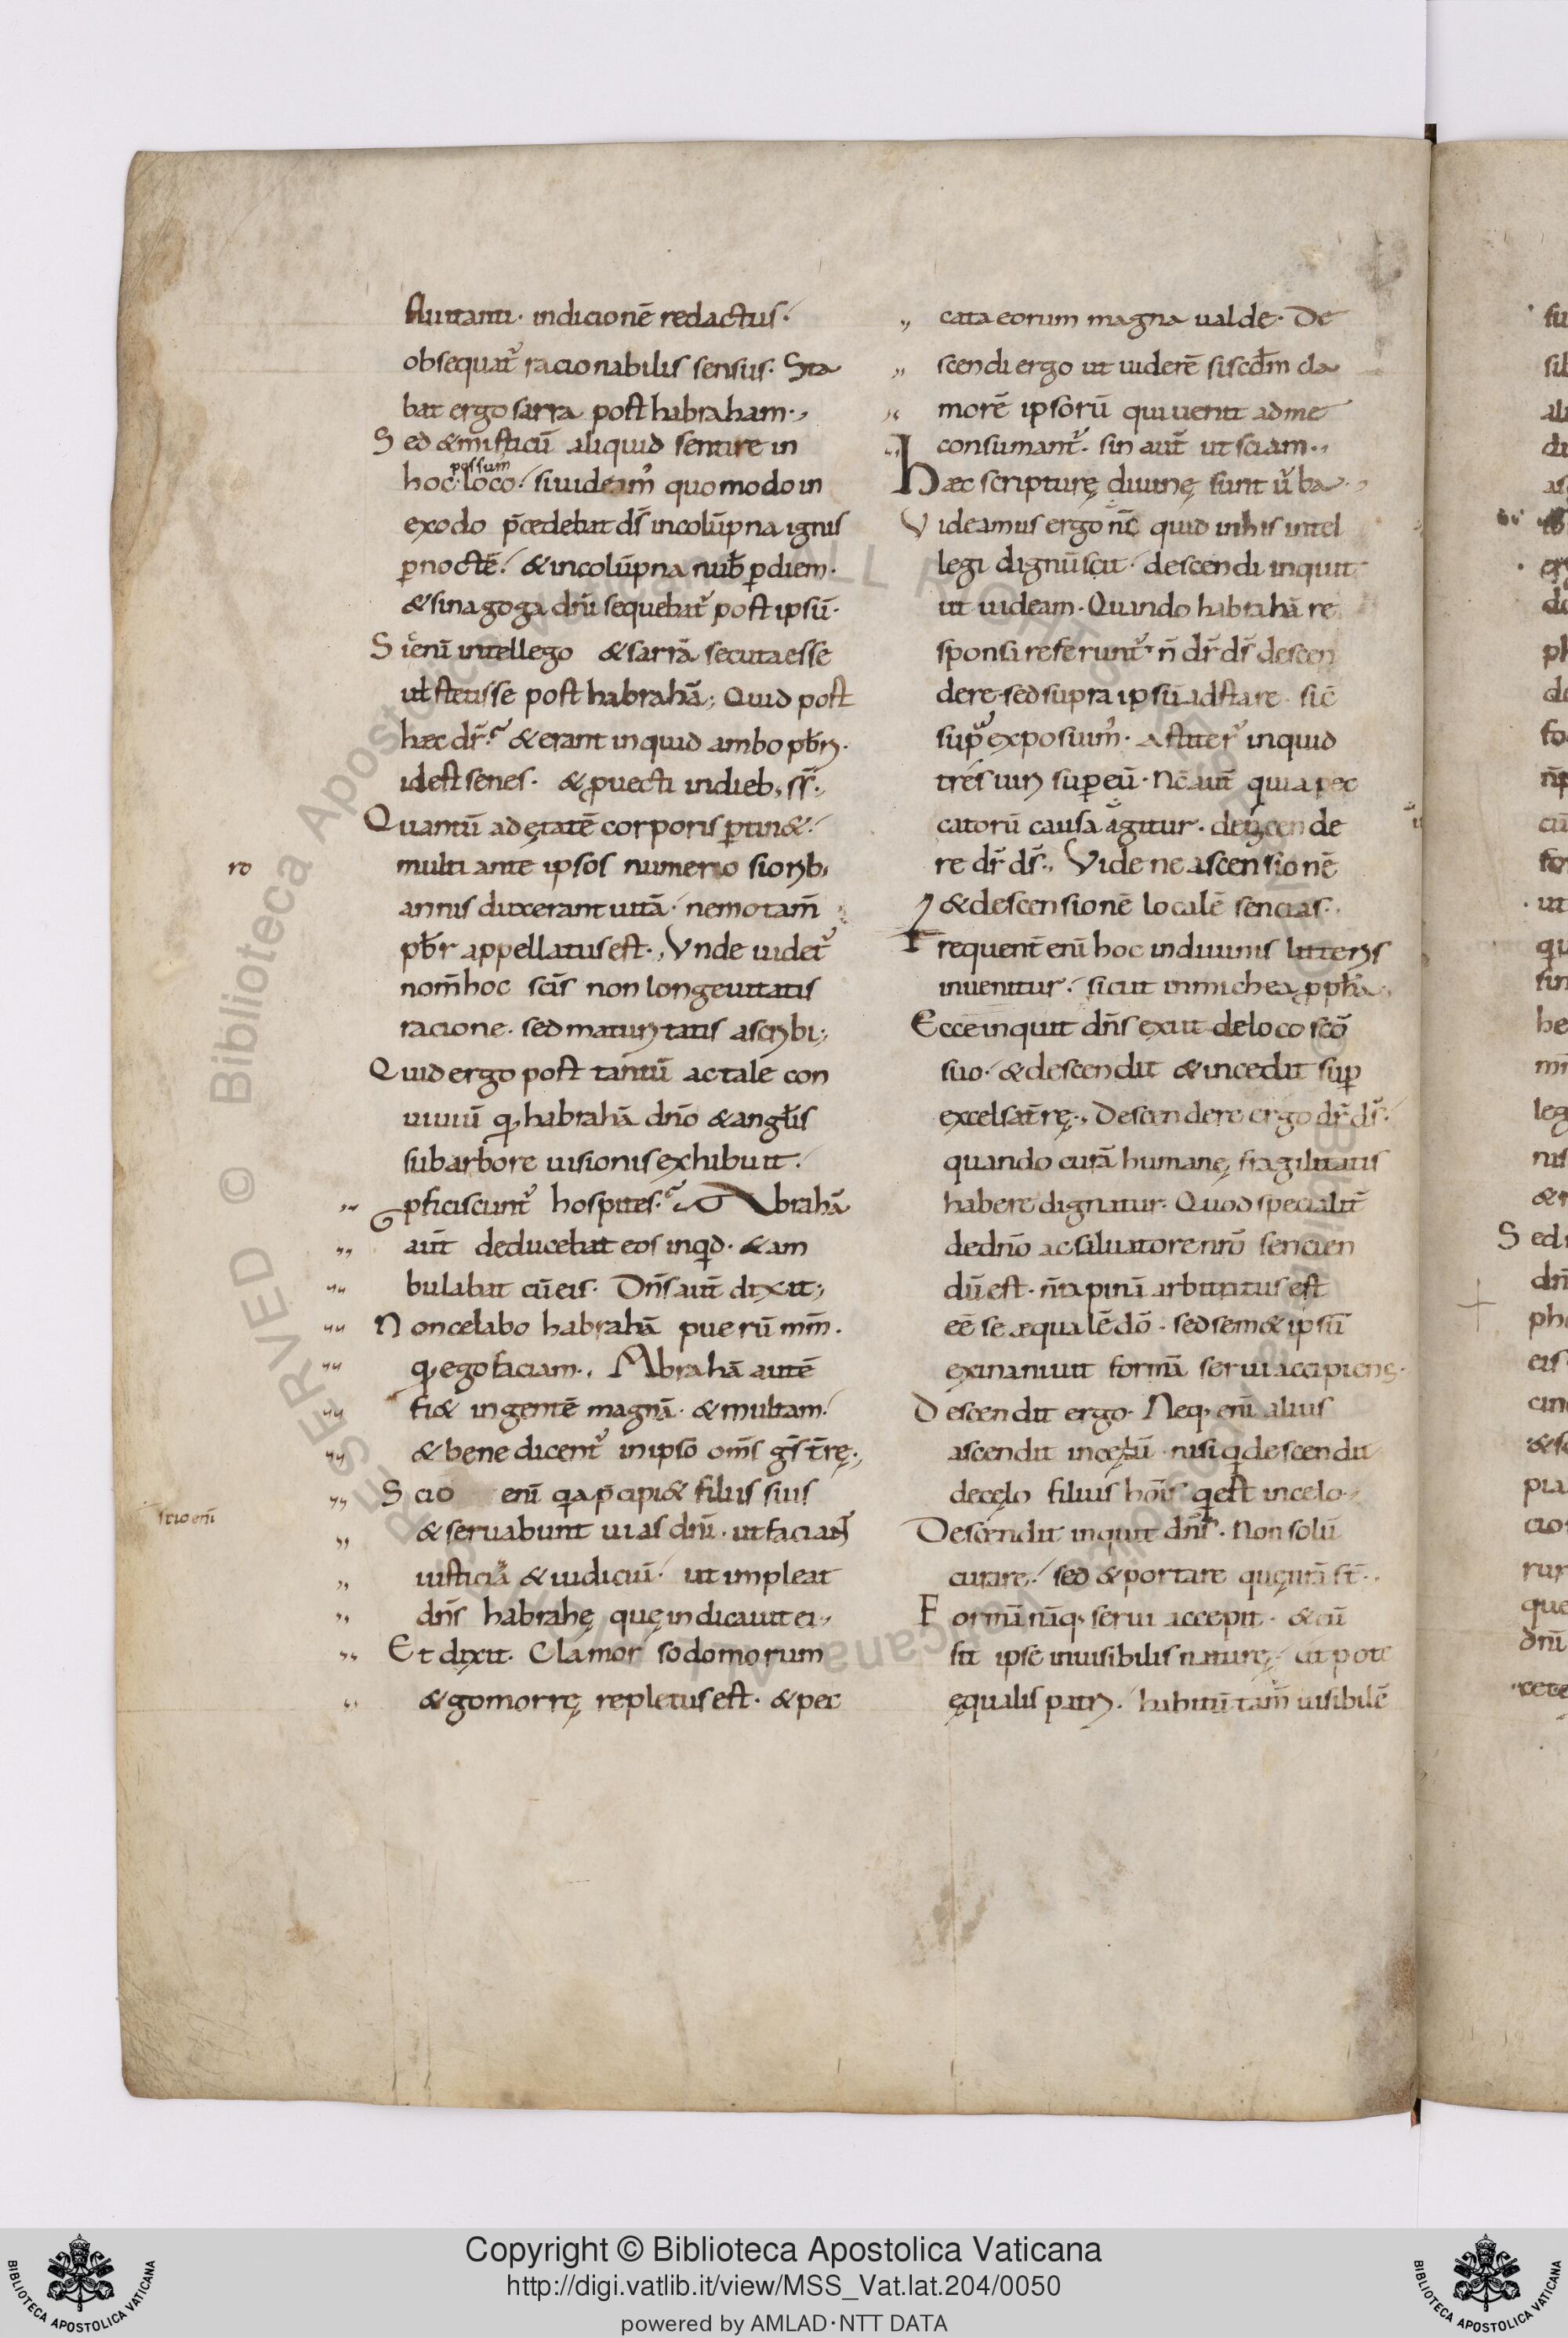 fluitanti· indicionē redactus·
obsequat᷒ racionabilis sensus· Sta
bat ergo sarra post habraham·,
Sed &misticū aliquid sentire in
possum᷒
hoc·loco· siuideam᷒ quomodoin
exodo p̄cedebat ds̄ incolūpna ignis
ꝑnoctē· &incolūpna nub̄ ꝑdiem·
&sinagoga dn̄i sequebat᷒ post ipsū·
Sic̄enī intellego &sarrā secutaesse
ut̄ stetisse post habrahā; Quid post
hæc dr̄· &erant inquid ambo pb̄ri·
idest senes· &ꝓuecti indieb; sꝭ·,
Quantū adętatē corporis ꝑtin&·
ro
multi ante ipsos numerio siorib;
annis duxerant uitā· nemo tam̄
pb̄r appellatus est·, Unde uidet᷒
nom̄hoc scīs non longeuitatis
racione· sed maturitatis ascribi;
Quid ergo post tantū actale con
uiuiū qđ habrahā dn̄o &angl̄is
subarbore uisionis exhibuit·
ꝓficiscunt᷒ hospites· Abrahā
aut̄ deducebat eos inqid· &am
bulabat cū eis· Dn̄s aut̄ dixit;
Non celabo habrahā puerū mm̄·
qđ ego faciam·, Abrahā autē
fi& in gentē magnā· &multam·
&benedicent᷒ inipso om̄s gs̄ t̄rę·,
Scio enī qia p̄cipi& filius suis
scio enī
&seruabunt uias dn̄i· ut faciant
iusticiā &iudiciū· ut impleat
dn̄s habrahę quę indicauit ei·,
Et dixit· Clamor sodomorum
&gomorrę repletus est· &pec
cata eorum magna ualde· De
scendi ergo ut uiderē si scd̄m cla
morē ipsorū qui uenit ad me
consumant᷒· sin aut̄ ut sciam·,
Hæc scripturę diuinę sunt ūba·,
Videamus ergo nc̄ quid inhis intel
legi dignū scit· descendi inquit
ut uideam· Quando habrahā re
sponsa referunt᷒ n̄ dr̄ ds̄ descen
dere· sed supra ipsū adstare· sic̄
supͣ exposuim᷒· Astiter᷒ inquid
tres uiri suꝑ eū· Nc̄ aut̄ quia pec
catorū causa agitur· descende
re dr̄ ds̄·, Vide ne ascensionē
&descensionē localē sencias·,
Frequent̄ enī hoc indiuinis litteris
inuenitur· sicut inmichea ꝓpħa·,
Ecce inquit dn̄s exiit de loco scō
suo· &descendit &incedit suꝑ
excelsa t̄rę·, Descendere ergo dr̄ ds̄·
quando curā humanę fragilitatis
habere dignatur· Quod specialit̄
dedn̄o ac saluatore nr̄o sencien
dū est· n̄ rapinā arbitratus est
eē se æqualē dō· sed sem&ipsū
exinaniuit formā serui accipiens·
Descendit ergo· Neq; enī alius
ascendit in cęlū nisi qi descendit
decęlo filius hōis qi est incelo·,
Descendit inquit dn̄s· Non solū
curare· sed &portare quę nr̄a st̄·,
Formā nāq; serui accepit· &cū
sit ipse inuisibilis naturę ut pote
ęqualis patri· habitū tam̄ uisibilē
Copyright © Biblioteca Apostolica Vaticana
http://digi.vatlib.it/view/MSS_Vat.lat.204/0050
powered by AMLAD·NTT DATA